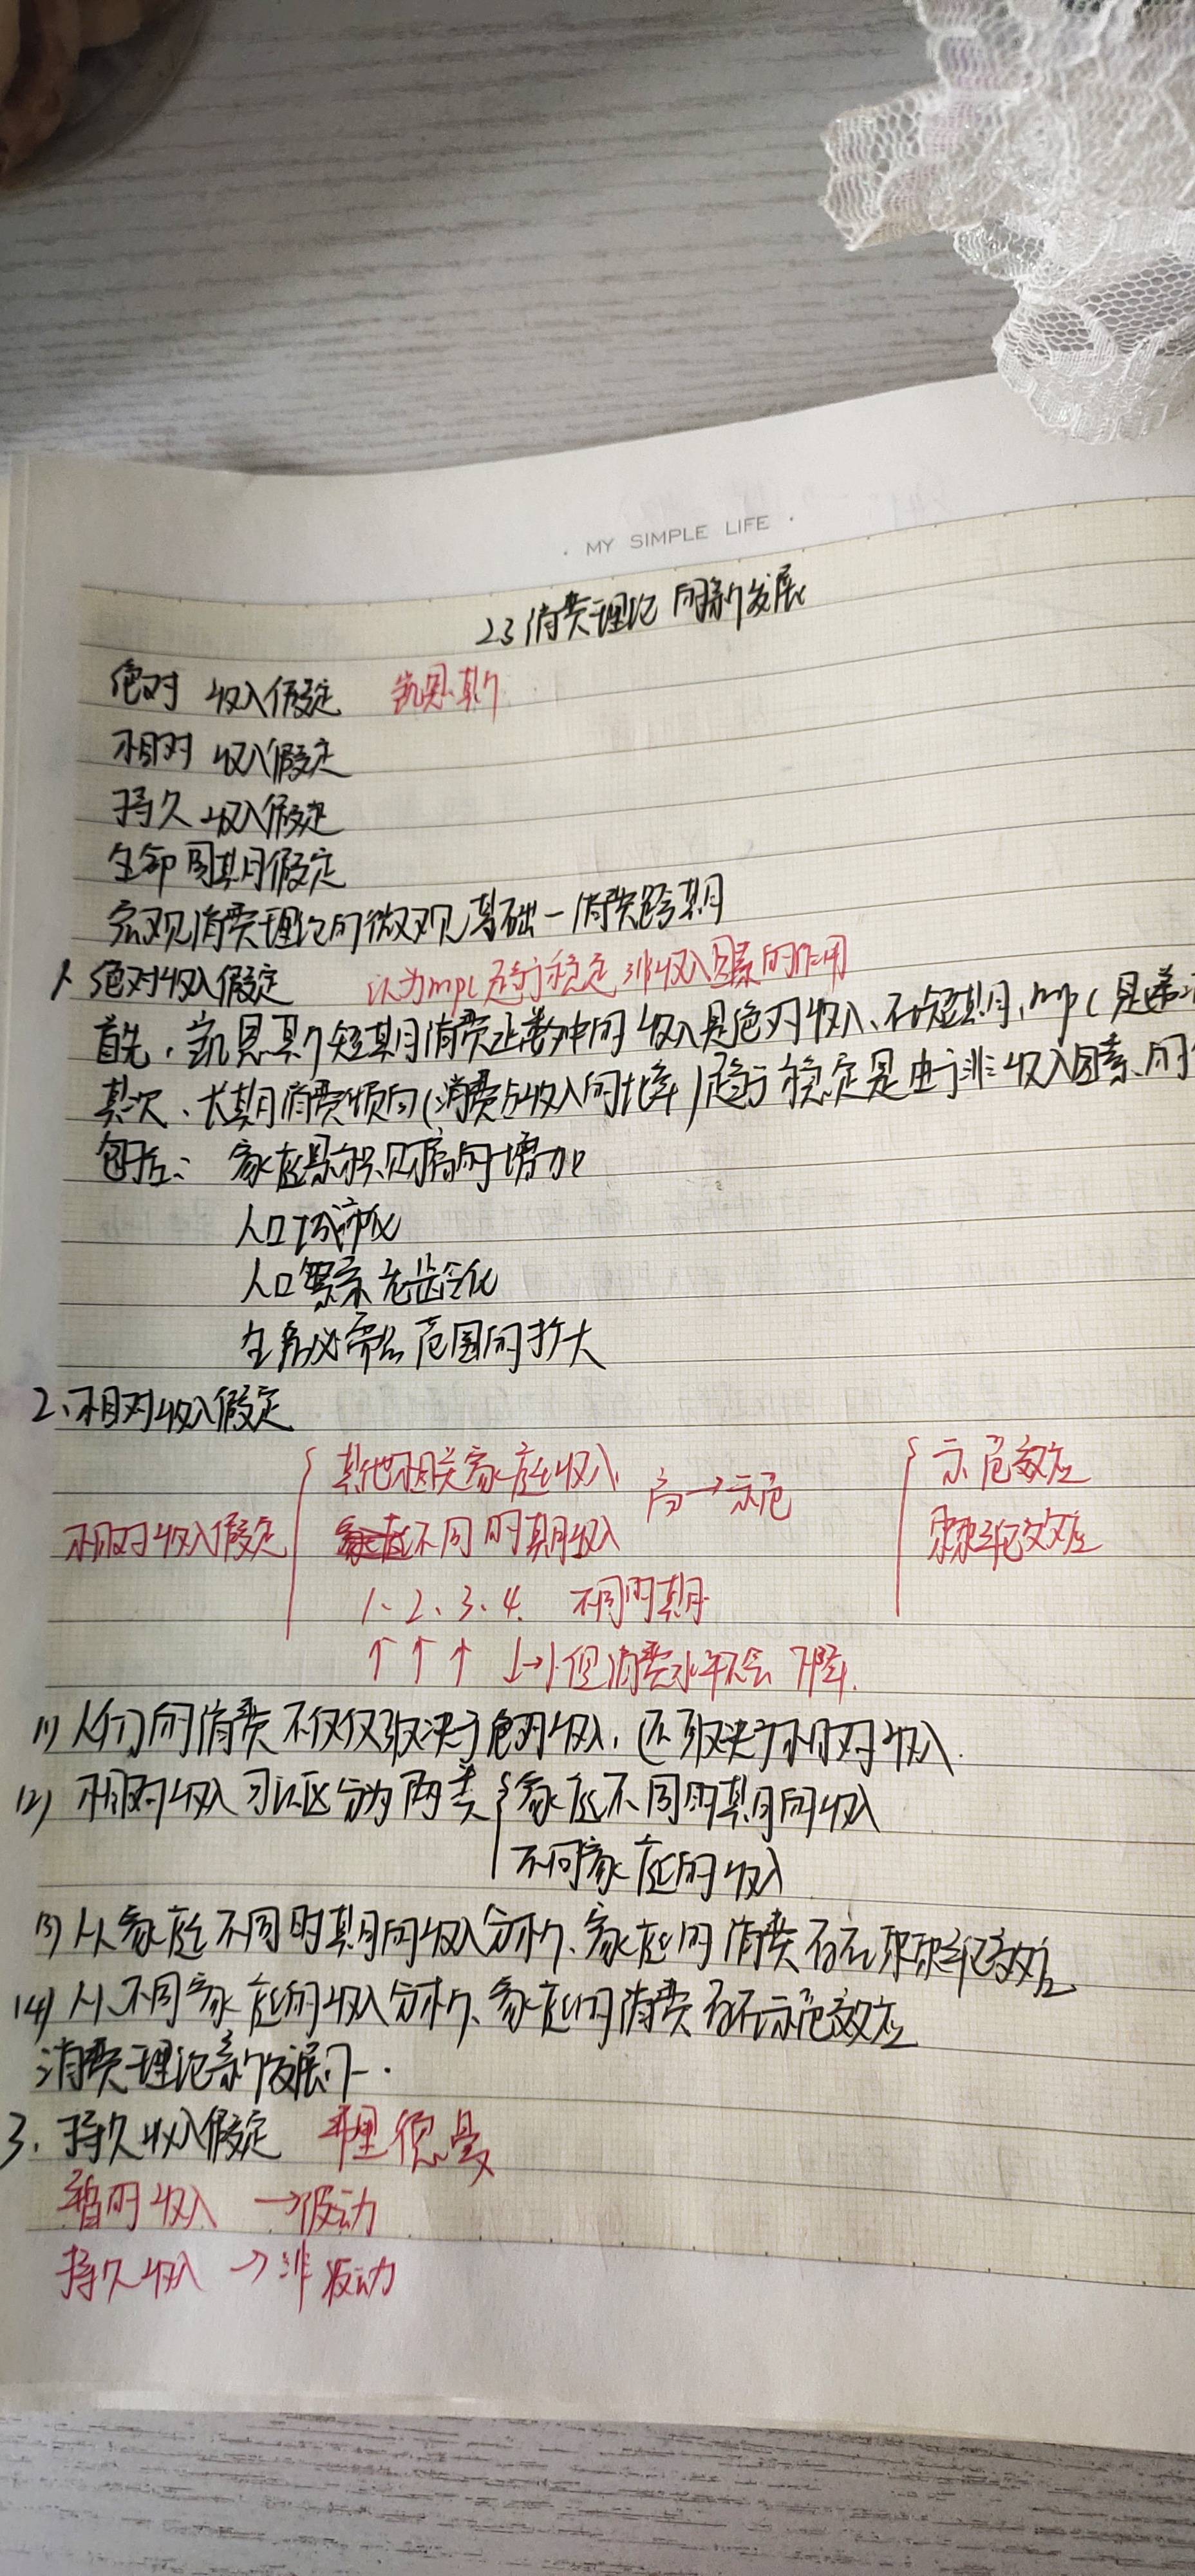 · MY SIMPLE LIFE ·
2.3 消费理论的新发展
绝对收入假定 凯恩斯
相对收入假定
持久收入假定
生命周期假定
宏观消费理论的微观基础—消费跨期
1、绝对收入假定 认为mpc趋于稳定 非收入因素的作用
首先、凯恩斯短期消费函数中的收入是绝对收入、在短期,mpc是递
其次、长期消费倾向(消费占收入的比率)趋于稳定是由于非收入因素的
包括: 家庭累积财富的增加
人口城市化
人口 老龄化
生活必需品范围的扩大
2、相对收入假定
其他相关家庭收入 高→示范 示范效应
相对收入假定 不同时期收入 棘轮效应
1、2、3、4. 不同时期
↑ ↑ ↑ ↓→ 但消费水平不会下降.
(1) 人们的消费不仅仅取决于绝对收入,还取决于相对收入.
(2) 相对收入可以区分为两类 家庭不同时期的收入
不同家庭的收入
(3) 从家庭不同时期的收入分析、家庭的消费存在棘轮效应
(4) 从不同家庭的收入分析、家庭的消费存在示范效应
消费理论新发展
3、持久收入假定 弗里德曼
暂时收入 →波动
持久收入 →非波动